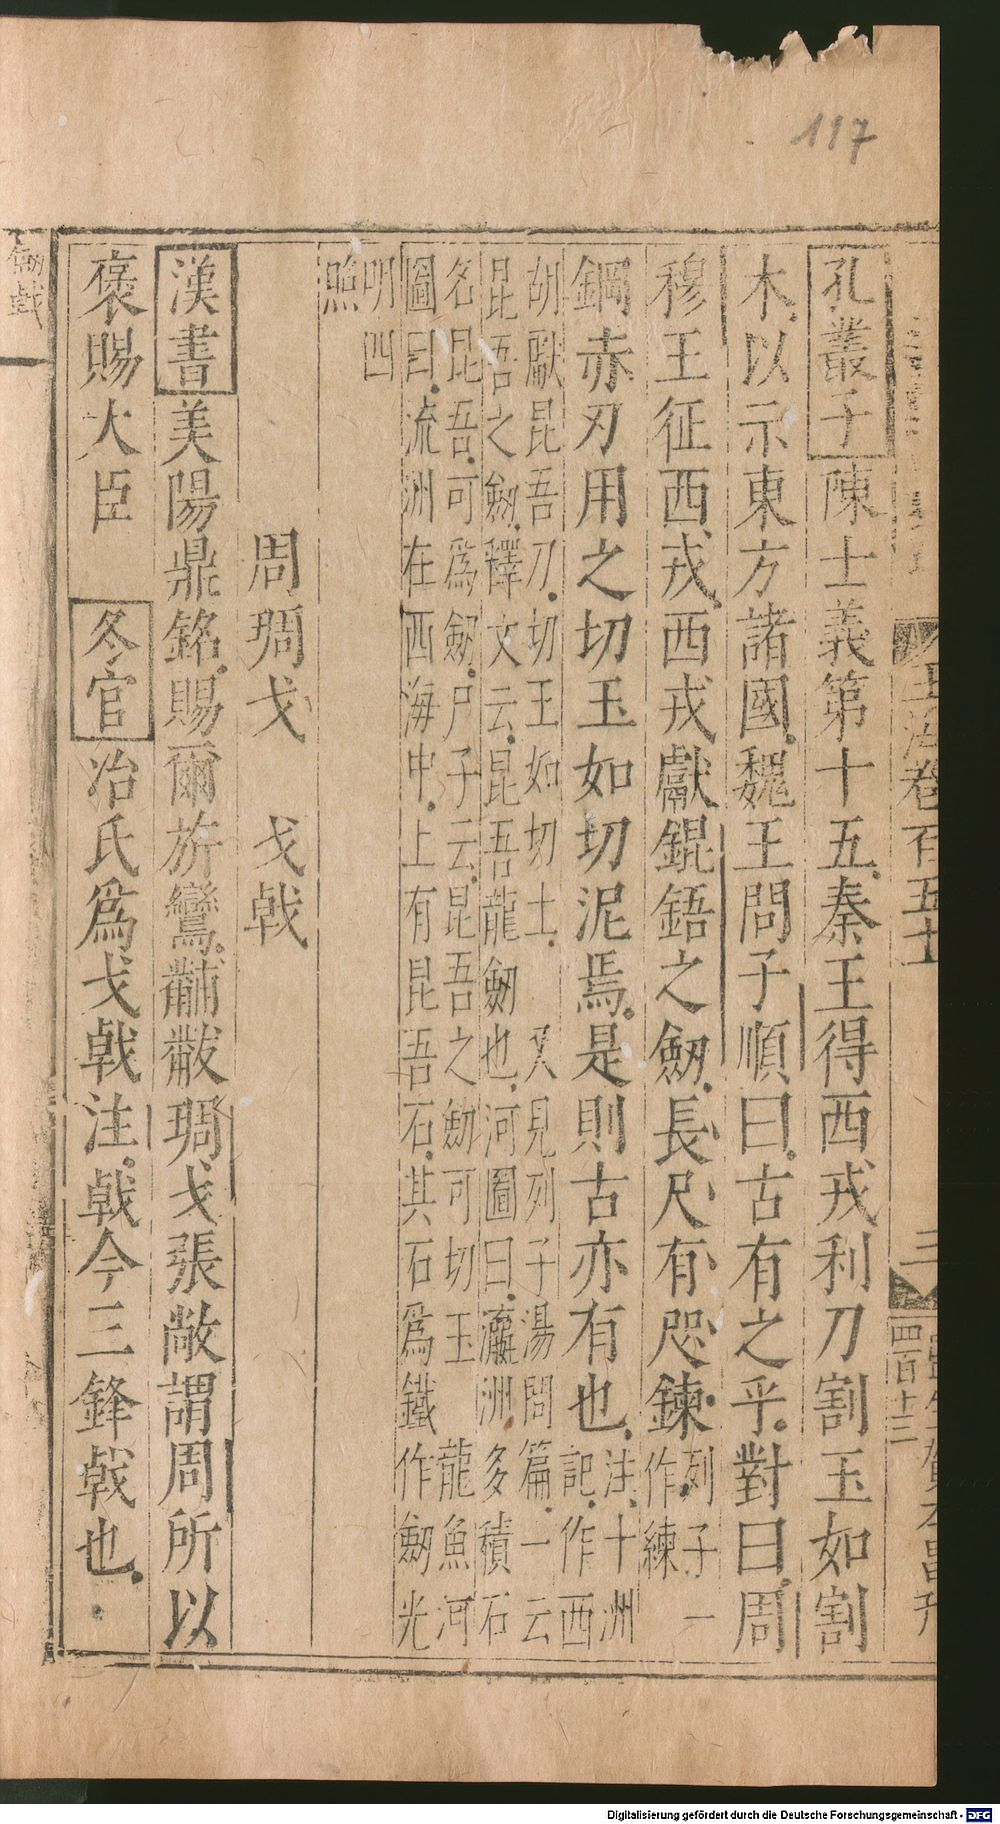 117
玉海卷百五十
三
四百十三
孔叢子陳士義第十五秦王得西戎利刀割玉如割
木以示東方諸國魏王問子順曰古有之乎對曰周
穆王征西戎西戎獻錕鋙之劒長尺有咫鍊列子一作練
鋼赤刃用之切玉如切泥焉是則古亦有也注十洲記作西
胡獻昆吾刀切玉如切土又見列子湯問篇一云
昆吾之劒釋文云昆吾龍劒也河圖曰瀛洲多積石
名昆吾可為劒尸子云昆吾之劒可切玉龍魚河
圖曰流洲在西海中上有昆吾石其石為鐵作劒光
明四
照
周琱戈 戈戟
漢書美陽鼎銘賜爾旂鸞黼黻琱戈張敞謂周所以
褒賜大臣 冬官冶氏為戈戟注戟今三鋒戟也
劒戟
Digitalisierung gefördert durch die Deutsche Forschungsgemeinschaft - DFG